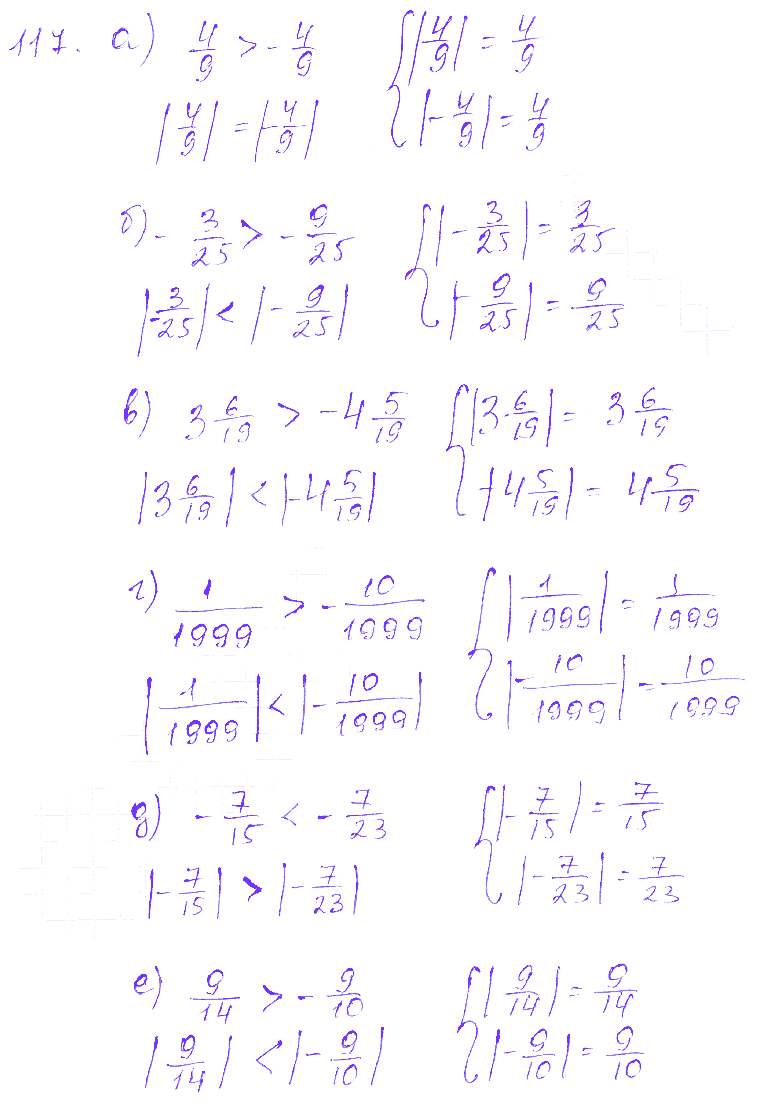 117. а) 4/9 > -4/9 { |4/9| = 4/9
|4/9| = |-4/9| |-4/9| = 4/9
б) -3/25 > -9/25 { |-3/25| = 3/25
|-3/25| < |-9/25| |-9/25| = 9/25
в) 3 6/19 > -4 5/19 { |3 6/19| = 3 6/19
|3 6/19| < |-4 5/19| |-4 5/19| = 4 5/19
г) 1/1999 > -10/1999 { |1/1999| = 1/1999
|1/1999| < |-10/1999| |-10/1999| = 10/1999
д) -7/15 < -7/23 { |-7/15| = 7/15
|-7/15| > |-7/23| |-7/23| = 7/23
е) 9/14 > -9/10 { |9/14| = 9/14
|9/14| < |-9/10| |-9/10| = 9/10